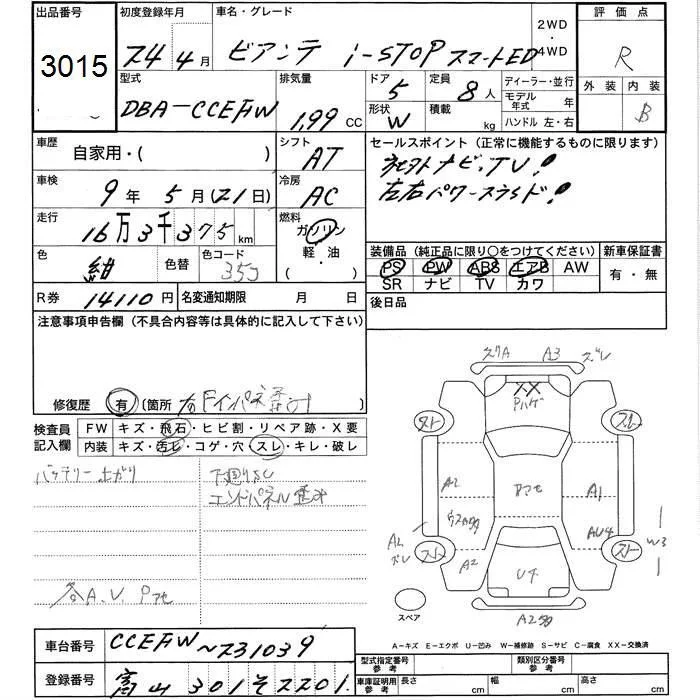 出品番号 初度登録年月 車名・グレード 2WD・4WD 評価点
3015 24年4月 ビアンテ i-STOP スマートED R
型式 排気量 ドア 定員 ディーラー・並行 外装 内装
DBA-CCEFW 1.99 CC 5 8人 モデル年式 年 B
形状 W 積載 kg ハンドル 左・右
車歴 シフト セールスポイント(正常に機能するものに限ります)
自家用・( ) AT ナビ,TV!
車検 冷房 左右パワースライド!
9年5月(21日) AC
走行 燃料
16万3千375km ガソリン
軽・油
( ・ )
装備品(純正品に限り○をつけてください) 新車保証書
色 紺 色替 色コード 35J
PS PW ABS エアB AW 有・無
SR ナビ TV カワ
R券 14110円 名変通知期限 月 日 後日品
注意事項申告欄(不具合内容等は具体的に記入して下さい)
修復歴 有 (箇所 右Fインパネ )
検査員記入欄 FW キズ・飛石・ヒビ割・リペア跡・X要
内装 キズ・汚レ・コゲ・穴・スレ・キレ・破レ
バッテリー上がり 下廻りサビ
エンドパネル
A.V.
A3
XX
Pハゲ
A2 A1
A2 AU4
W3
A2
U4
スペア
A2
A-キズ E-エクボ U-凹み W-補修跡 S-サビ C-腐食 XX-交換済
車台番号 CCEFW~231039
登録番号 富山 301 そ 2201
型式指定番号 参考 類別区分番号 参考
車庫証明用 参考 長さ cm 幅 cm 高さ cm